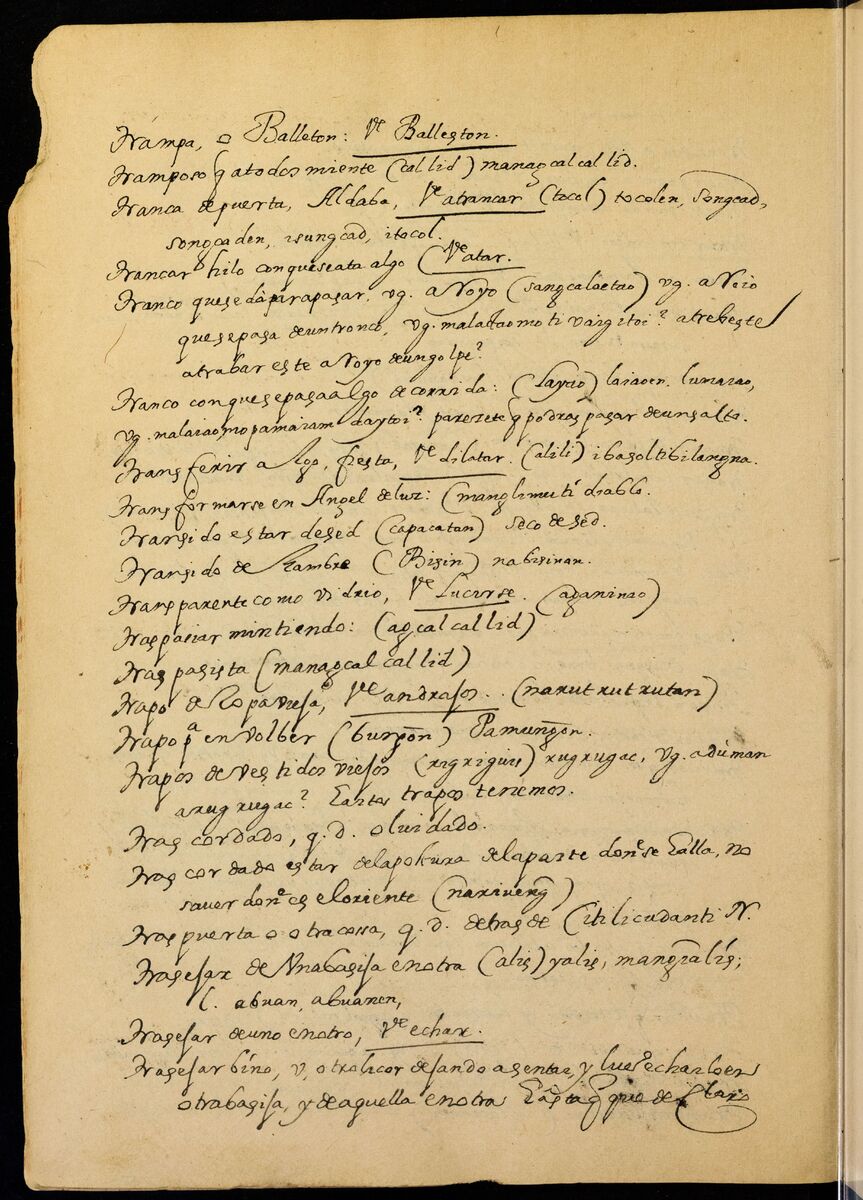 trampa, o Balleton: Vᵉ Balleston.
tramposo q̃ atodos miente (cal lid) managcal cal lid.
tranca de puerta, Aldaba, Vᵉ atrancar (tocol) tocolen, songcad,
songcaden, isungcad, itocol.
trancar hilo conqueseata algo (Vᵉ atar.
tranco que se dà para pasar, vg. aRoyo (sangcal) vg. aRoio
que se pasa de un tronco, vg. atrebeste
atrabar este aRoyo de un golpe?
tranco con que se pasa algo de corrida: (Layao) laiaoen. lumaiao,
vg. parezete q̃ podras pasar de un salto.
transferir a Algo, fiesta, Vᵉ dilatar. (alili) ibasoltibilangna.
transformarse en Angel de luz: (manglimutí diablo.
transido estar de sed (capacatan) seco de sed.
transido de Hambre (Bisin) nabisinan.
transparente como vidrio, Vᵉ Lucirse. (aganinao)
traspasiar mintiendo: (agcal cal lid)
traspasista (managcal cal lid)
trapo de Ropa viesa, Vᵉ andrasos. (narutrutrutan)
trapo pᵃ en volber (bungon) Pamungon.
trapos de vestidos viesos (rugrugac, vg. adúman
a rugrugac? Eartos trapos tenemos.
trascordado, q. d. olvidado.
trascordado estar dela postura dela parte donᵉ se Ealla, no
saver donᵉ es el oriente (nariveng)
traspuerta o otra cossa, q. d. detras de (itilicudanti N.
trasesar de Vna basisa en otra (alis) yalis, mangialis;
l. abuan, abuanen,
trasesar de uno en otro, Vᵉ echar.
trasesar bino, v, otro licor desando asentar, y luego echarlo en
otra basisa, y de aquella en otra Easta que